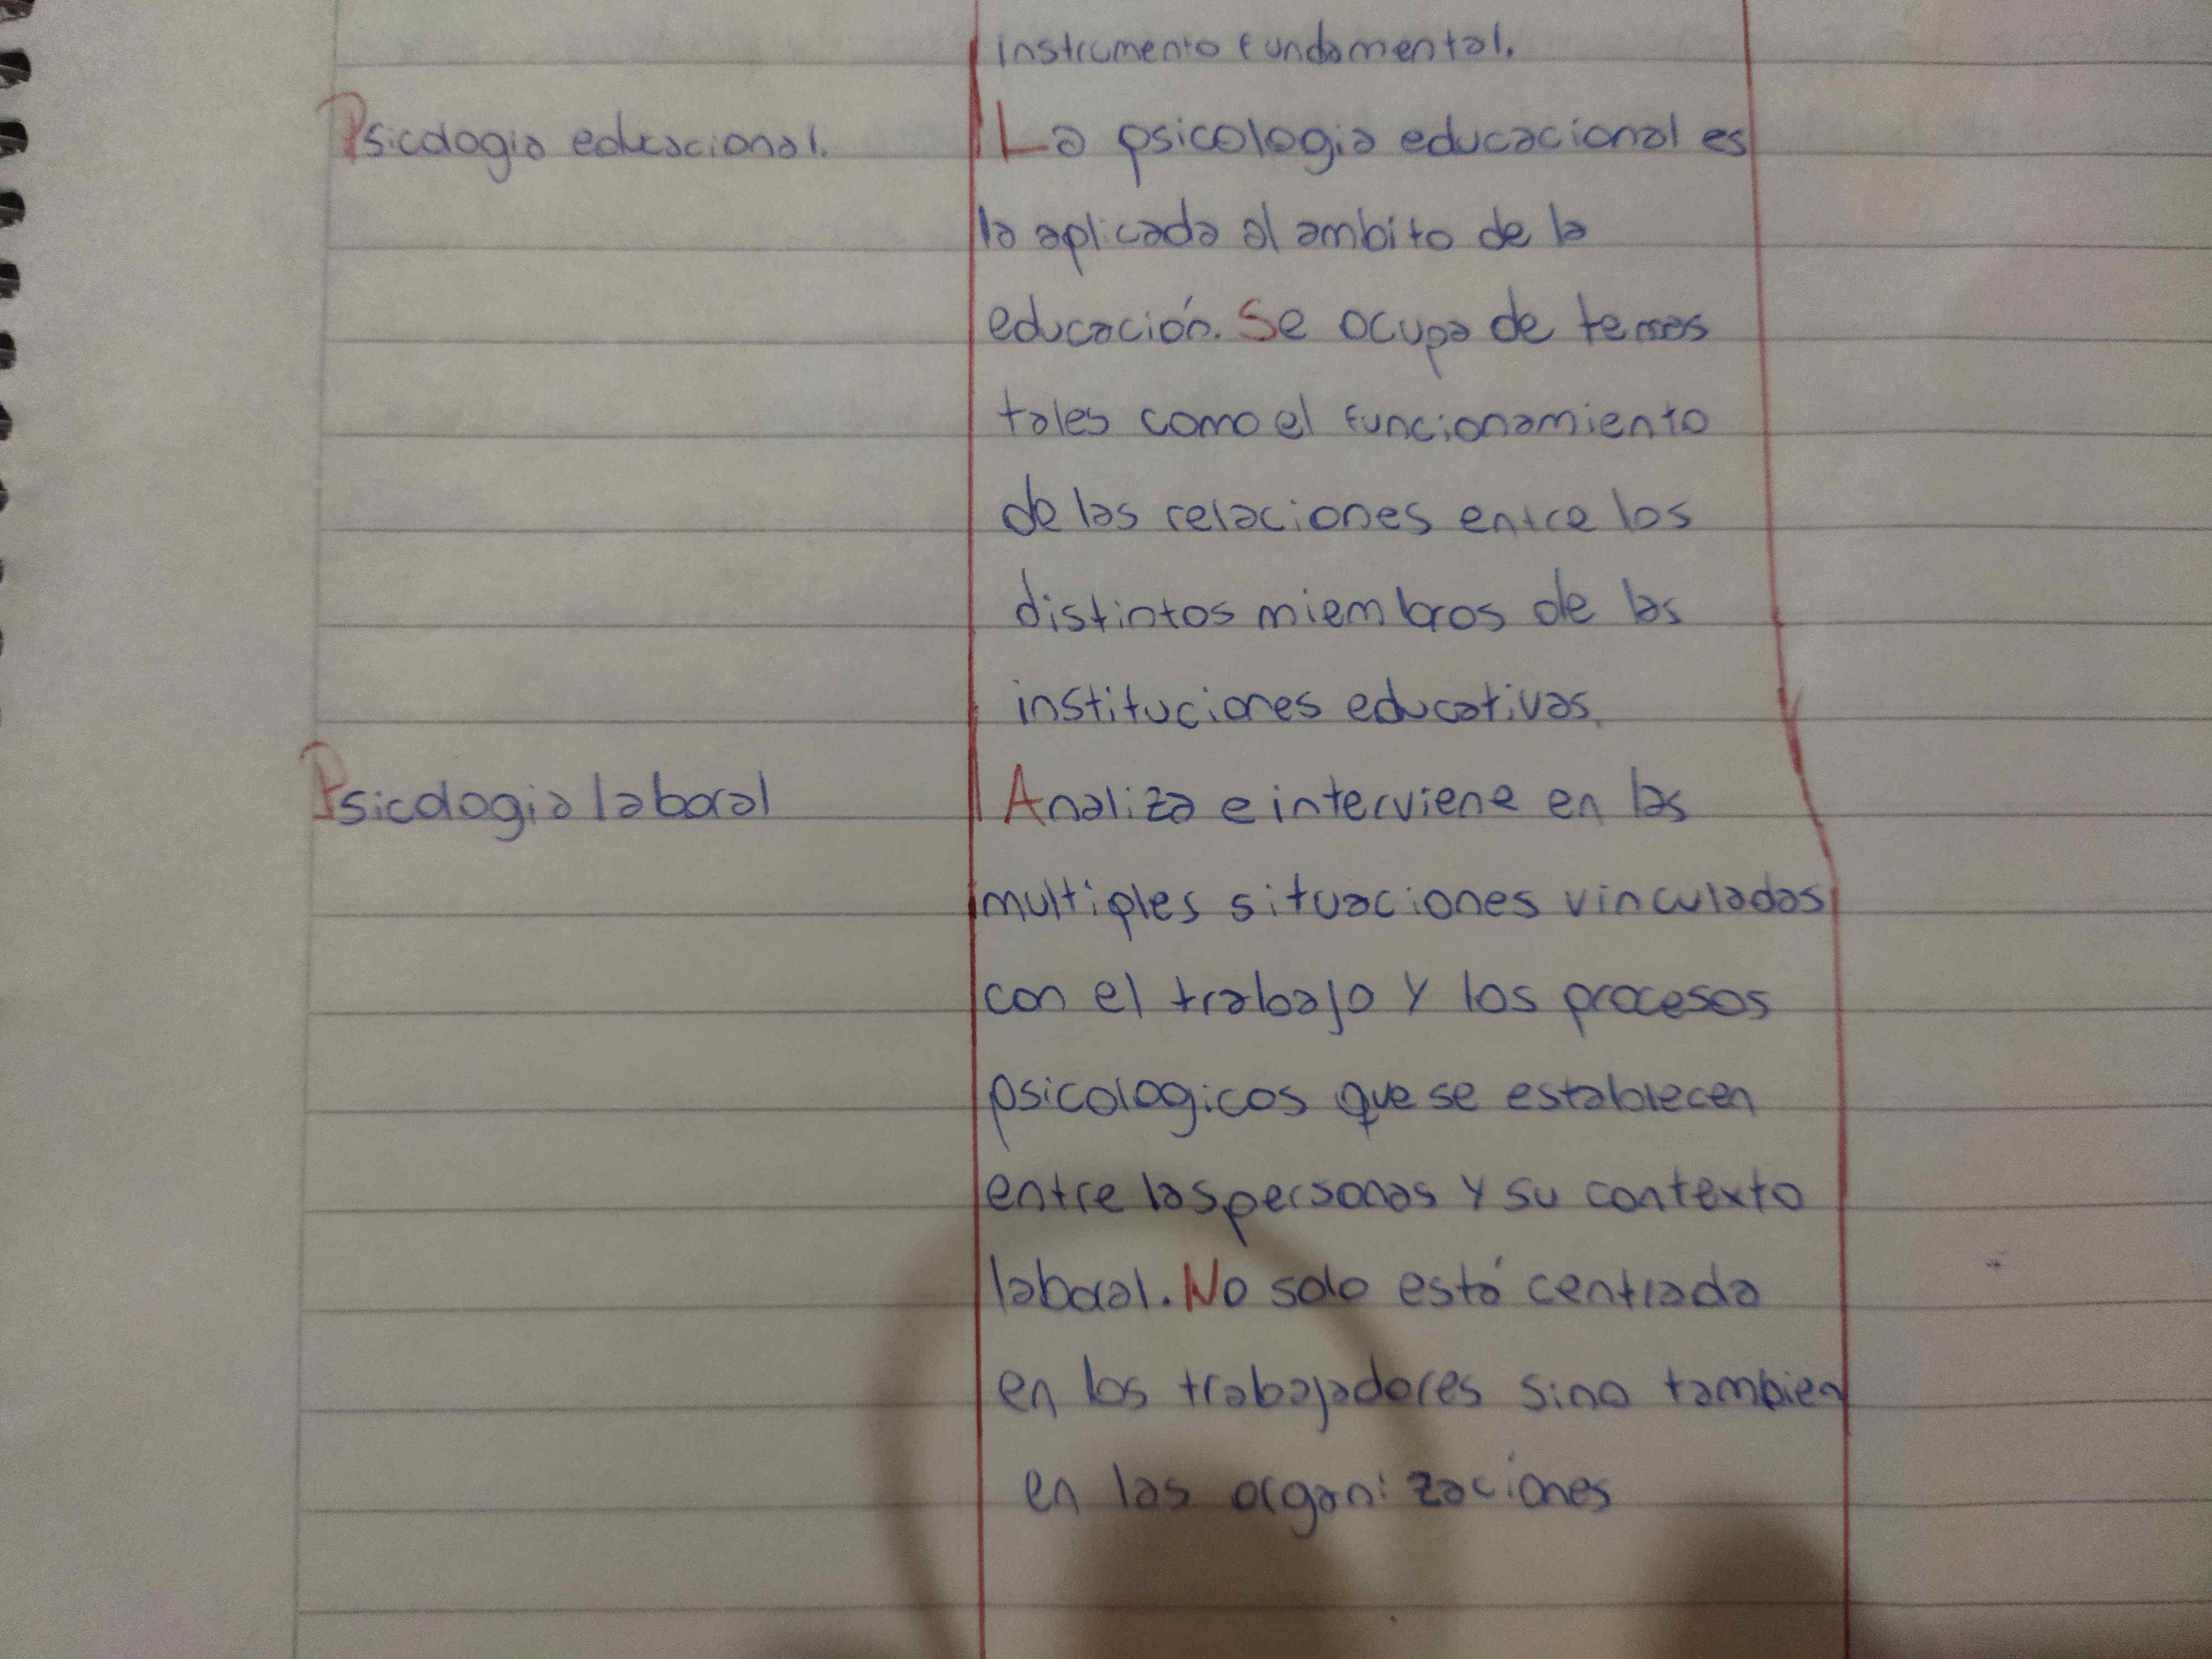 instrumento fundamental.
Psicologia educacional.
La psicologia educacional es
la aplicada al ambito de la
educación. Se ocupa de temas
tales como el funcionamiento
de las relaciones entre los
distintos miembros de las
instituciones educativas.
Psicologia laboral
Analiza e interviene en las
multiples situaciones vinculadas
con el trabajo y los procesos
psicologicos que se establecen
entre las personas y su contexto
laboral. No solo está centrada
en los trabajadores sino tambien
en las organizaciones